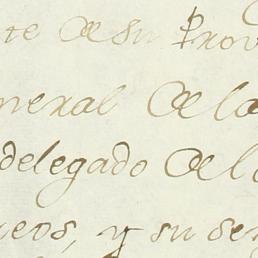 te de su Prov
neral de la
delegado de l
eos, y su ser